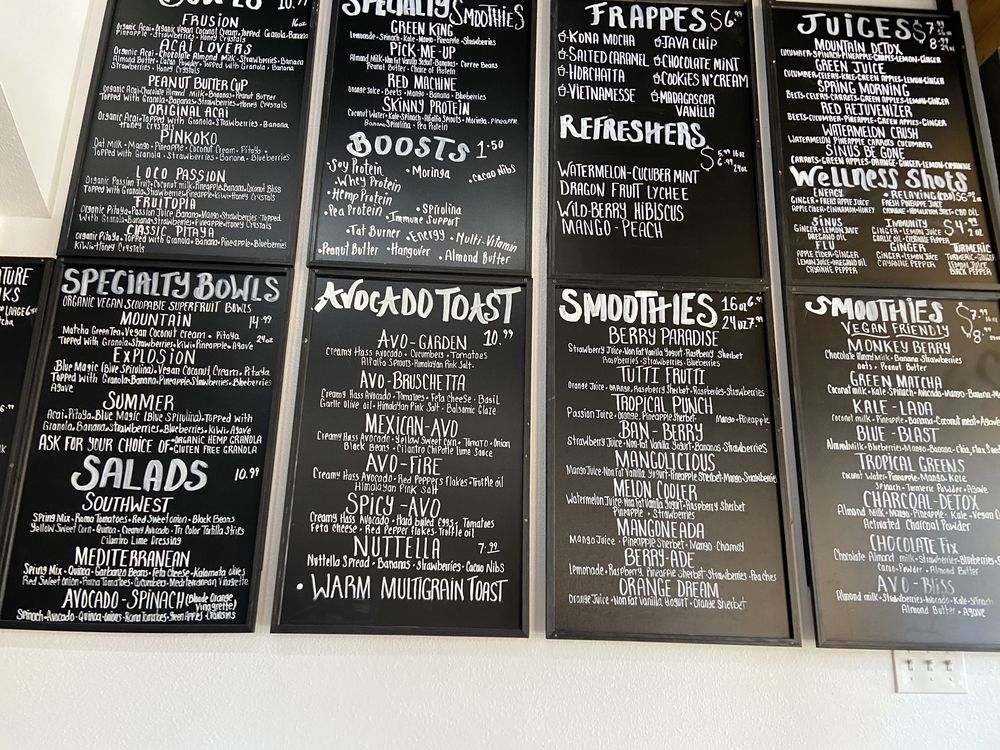 BOWLS 10.99
FRUSION 16oz
Organic Acai·Organic Vegan Coconut Cream·Topped Granola·Banana
Pineapple·Strawberries·Honey Crystals
ACAI LOVERS
Organic Acai·Chocolate Almond Milk·Strawberries·Banana
Almond Butter·Cacao Powder·Topped with Granola·Banana
Strawberries·Honey Crystals
PEANUT BUTTER CUP
Organic Acai·Chocolate Almond Milk·Bananas·Peanut Butter
Topped with Granola·Bananas·Strawberries·Honey Crystals
ORIGINAL ACAI
Topped with Granola·Strawberries·Banana
Honey Crystals
PINKOKO
Oat Milk·Mango·Pineapple·Coconut Cream·Pitaya
Topped with Granola·Strawberries·Banana·Blueberries
LOCO PASSION
Organic Passion Fruit·Coconut milk·Pineapple·Banana·Coconut Bliss
Topped with Granola·Strawberries·Pineapple·Kiwi·Honey Crystals
FRUITOPIA
Organic Pitaya·Passion Juice·Banana·Mango·Strawberries·Topped
With Granola·Bananas·Strawberries·Pineapple·Honey Crystals
CLASSIC PITAYA
Organic Pitaya·Topped with Granola·Banana·Pineapple·Blueberries
Kiwi·Honey Crystals
SPECIALTY SMOOTHIES
GREEN KING
Lemonade·Spinach·Kale·Mango·Pineapple·Strawberries
PICK-ME-UP
Almond Milk·Non Fat Vanilla Yogurt·Bananas·Coffee Beans
Peanut Butter·Choice of Protein
RED MACHINE
Orange Juice·Beets·Mango·Banana·Blueberries
SKINNY PROTEIN
Coconut Water·Kale·Spinach·Alfalfa Sprouts·Moringa·Pineapple
Banana·Spirulina·Pea Protein
BOOSTS 1.50
·Soy Protein
·Whey Protein
·Hemp Protein
·Pea Protein
·Moringa
·Cacao Nibs
·Spirulina
·Immune Support
·Fat Burner
·Energy
·Multi-Vitamin
·Peanut Butter ·Hangover ·Almond Butter
FRAPPES $6.99
KONA MOCHA JAVA CHIP
SALTED CARAMEL CHOCOLATE MINT
HORCHATTA COOKIES N' CREAM
VIETNAMESSE MADAGASCAR
VANILLA
REFRESHERS
$5.99 16oz
6.99 24oz
WATERMELON-CUCUBER MINT
DRAGON FRUIT LYCHEE
WILD-BERRY HIBISCUS
MANGO-PEACH
JUICES $7.99 16oz
8.99 24oz
MOUNTAIN DETOX
CUCUMBER·SPINACH·PINEAPPLE·GRAPES·LEMON·GINGER
GREEN JUICE
CUCUMBER·CELERY·KALE·GREEN APPLES·LEMON·GINGER
SPRING MORNING
BEETS·CELERY·CARROTS·GREEN APPLES·LEMON·GINGER
RED REJUVENIZER
BEETS·CUCUMBER·PINEAPPLE·GREEN APPLES·GINGER
WATERMELON CRUSH
WATERMELON PINEAPPLE CARROTS CUCUMBER
SINUS BE GONE
CARROTS·GREEN APPLES·ORANGE·GINGER·LEMON·CAYANNE
WELLNESS SHOTS
ENERGY
GINGER·FRESH APPLE JUICE
APPLE CIDER·CINNAMON·HONEY
·RELAXING (CBD) $6
FRESH PINEAPPLE JUICE
CAYANNE·HIMALAYAN SALT·CBD OIL
SINUS
GINGER·LEMON JUICE
OREGANO OIL
IMMUNITY $4.99 2oz
GINGER·LEMON JUICE
GARLIC OIL·CAYANNE PEPPER
FLU
APPLE CIDER·GINGER
LEMON JUICE·OREGANO OIL
CAYANNE PEPPER
GINGER
GINGER·LEMON JUICE
CAYANNE PEPPER
TURMERIC
TURMERIC·GINGER
LEMON JUICE
BLACK PEPPER
SPECIALTY BOWLS
ORGANIC VEGAN SCOOPABLE SUPERFRUIT BOWLS
MOUNTAIN 14.99
Matcha Green Tea·Vegan Coconut Cream·Pitaya 24oz
Topped with Granola·Bananas·Strawberries·Kiwi·Pineapple·Agave
EXPLOSION
Blue Magic (Blue Spirulina)·Vegan Coconut Cream·Pitaya
Topped with Granola·Banana·Pineapple·Strawberries·Blueberries
Agave
SUMMER
Acai·Pitaya·Blue Magic (Blue Spirulina)·Topped with
Granola·Bananas·Strawberries·Blueberries·Kiwi·Agave
ASK FOR YOUR CHOICE OF ·ORGANIC HEMP GRANOLA
·GLUTEN FREE GRANOLA
SALADS 10.99
SOUTHWEST
Spring Mix·Roma Tomatoes·Red Sweet onion·Black Beans
Yellow Sweet Corn·Quinoa·Creamy Avocado·Tri Color Tortilla Strips
Cilantro Lime Dressing
MEDITERRANEAN
Spring Mix·Quinoa·Garbanzo Beans·Feta Cheese·Kalamata olives
Red Sweet onion·Roma Tomatoes·Cucumbers·Mediterranean Vinaigrette
AVOCADO-SPINACH (Blode Orange
Vinagrette)
Spinach·Avocado·Quinoa·onions·Roma Tomatoes·Green Apples·Craisins
AVOCADO TOAST
AVO-GARDEN 10.99
Creamy Hass Avocado·Cucumbers·Tomatoes
Alfalfa Sprouts·Himalayan Pink Salt
AVO-BRUSCHETTA
Creamy Hass Avocado·Tomatoes·Feta Cheese·Basil
Garlic Olive oil·Himalayan Pink Salt·Balsamic Glaze
MEXICAN-AVO
Creamy Hass Avocado·Yellow Sweet Corn·Tomato·Onion
Black Beans·Cilantro Chipotle Lime Sauce
AVO-FIRE
Creamy Hass Avocado·Red Peppers Flakes·Truffle oil
Himalayan Pink Salt
SPICY-AVO
Creamy Hass Avocado·Hard boiled eggs·Tomatoes
Feta Cheese·Red Pepper flakes·Truffle oil
NUTTELLA 7.99
Nuttella Spread·Bananas·Strawberries·Cacao Nibs
·WARM MULTIGRAIN TOAST
SMOOTHIES 16oz 6.99
24oz 7.99
BERRY PARADISE
Strawberry Juice·Non Fat Vanilla Yogurt·Raspberry Sherbet
Raspberries·Strawberries·Blueberries
TUTTI FRUTTI
Orange Juice·Orange, Raspberry Sherbet·Raspberries·Strawberries
TROPICAL PUNCH
Passion Juice·Orange, Pineapple Sherbet·Mango·Pineapple
BAN-BERRY
Strawberry Juice·Non-Fat Vanilla Yogurt·Bananas·Strawberries
MANGOLICIOUS
Mango Juice·Non Fat Vanilla Yogurt·Pineapple Sherbet·Mango·Strawberries
MELON COOLER
Watermelon Juice·Non Fat Vanilla Yogurt·Raspberry Sherbet
Pineapple·Strawberries
MANGONEADA
Mango Juice·Pineapple Sherbet·Mango·Chamoy
BERRY-ADE
Lemonade·Raspberry, Pineapple Sherbet·Strawberries·Peaches
ORANGE DREAM
Orange Juice·Non Fat Vanilla Yogurt·Orange Sherbet
SMOOTHIES $7.99
VEGAN FRIENDLY 8.99
MONKEY BERRY
Chocolate Almond Milk·Banana·Strawberries
Oats·Peanut Butter
GREEN MATCHA
Coconut milk·Kale·Spinach·Avocado·Mango·Banana
KALE-LADA
Coconut milk·Pineapple·Banana·Coconut meat·Agave
BLUE-BLAST
Almond milk·Blueberries·Mango·Banana·Chia, flax Seed
TROPICAL GREENS
Coconut Water·Pineapple·Mango·Kale
Spinach·Turmeric Powder·Agave
CHARCOAL-DETOX
Almond Milk·Mango·Pineapple·Kale·Vegan
Activated Charcoal Powder
CHOCOLATE FIX
Chocolate Almond milk·Strawberries·Blueberries
Cacao-Powder·Almond Butter
AVO-BLISS
Almond milk·Strawberries·Avocado·Kale·Spinach
Almond Butter·Agave